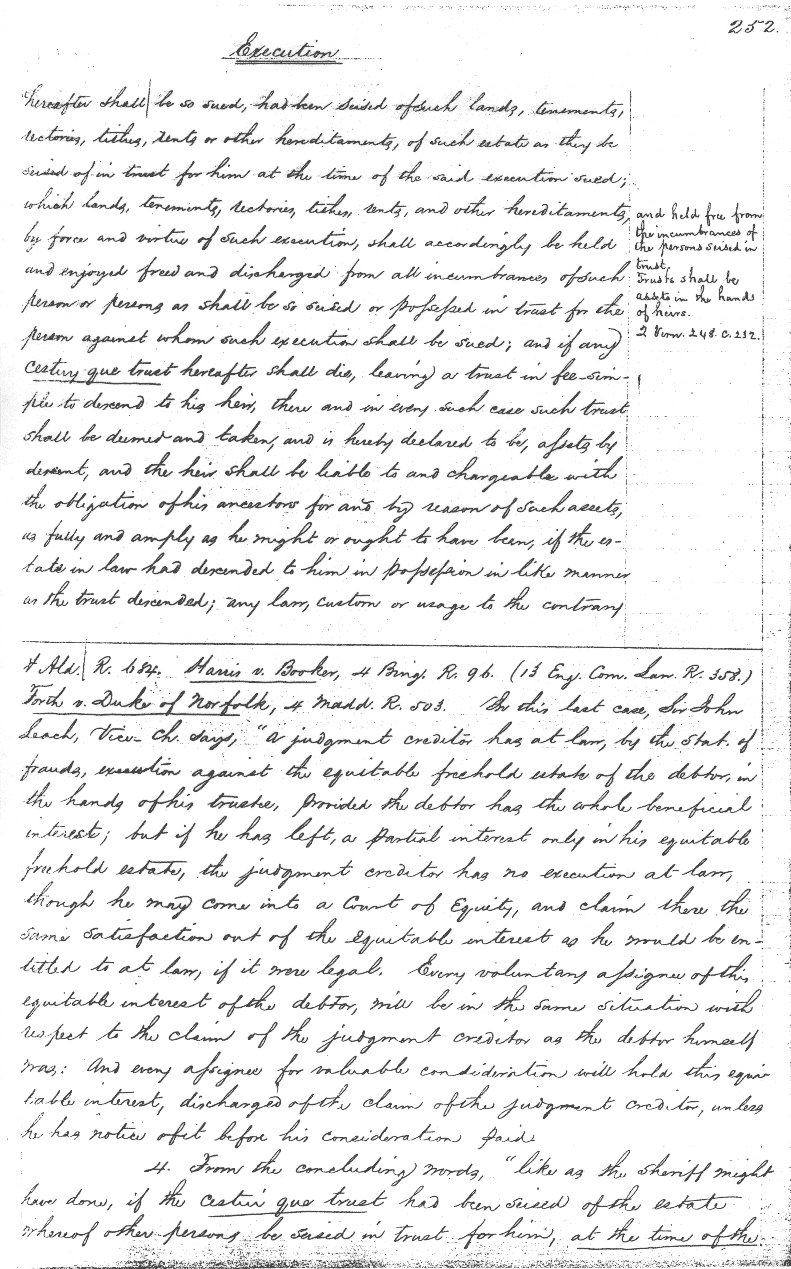 252.
Execution
hereafter shall be so sued, had been seised of such lands, tenements,
rectories, tithes, rents or other hereditaments, of such estate as they be
seised of in trust for him at the time of the said execution sued;
which lands, tenements, rectories, tithes, rents, and other hereditaments,
by force and virtue of such execution, shall accordingly be held
and enjoyed freed and discharged from all incumbrances of such
person or persons as shall be so seised or possessed in trust for the
person against whom such execution shall be sued; and if any
cestuy que trust hereafter shall die, leaving a trust in fee-sim-
ple to descend to his heir, there and in every such case such trust
shall be deemed and taken, and is hereby declared to be, assets by
descent, and the heir shall be liable to and chargeable with
the obligation of his ancestors for and by reason of such assets,
as fully and amply as he might or ought to have been, if the es-
tate in law had descended to him in possession in like manner
as the trust descended; any law, custom or usage to the contrary
and held free from
the incumbrances of
the persons seised in
trust.
Trusts shall be
assets in the hands
of heirs.
2 Vern. 248. c. 232.
& Ald. R. 684. Harris v. Booker, 4 Bing. R. 96. (13 Eng. Com. Law. R. 358.)
Forth v. Duke of Norfolk, 4 Madd. R. 503. In this last case, Sir John
Leach, Vice-Ch. says, "a judgment creditor has at law, by the Stat. of
frauds, execution against the equitable freehold estate of the debtor, in
the hands of his trustee, provided the debtor has the whole beneficial
interest; but if he has left, a partial interest only in his equitable
freehold estate, the judgment creditor has no execution at law,
though he may come into a Court of Equity, and claim there the
same satisfaction out of the equitable interest as he would be en-
titled to at law, if it were legal. Every voluntary assignee of this
equitable interest of the debtor, will be in the same situation with
respect to the claim of the judgment creditor as the debtor himself
was: And every assignee for valuable consideration will hold this equi-
table interest, discharged of the claim of the judgment creditor, unless
he has notice of it before his consideration paid.
4. From the concluding words, "like as the sheriff might
have done, if the cestui que trust had been seised of the estate
whereof other persons be seised in trust for him, at the time of the